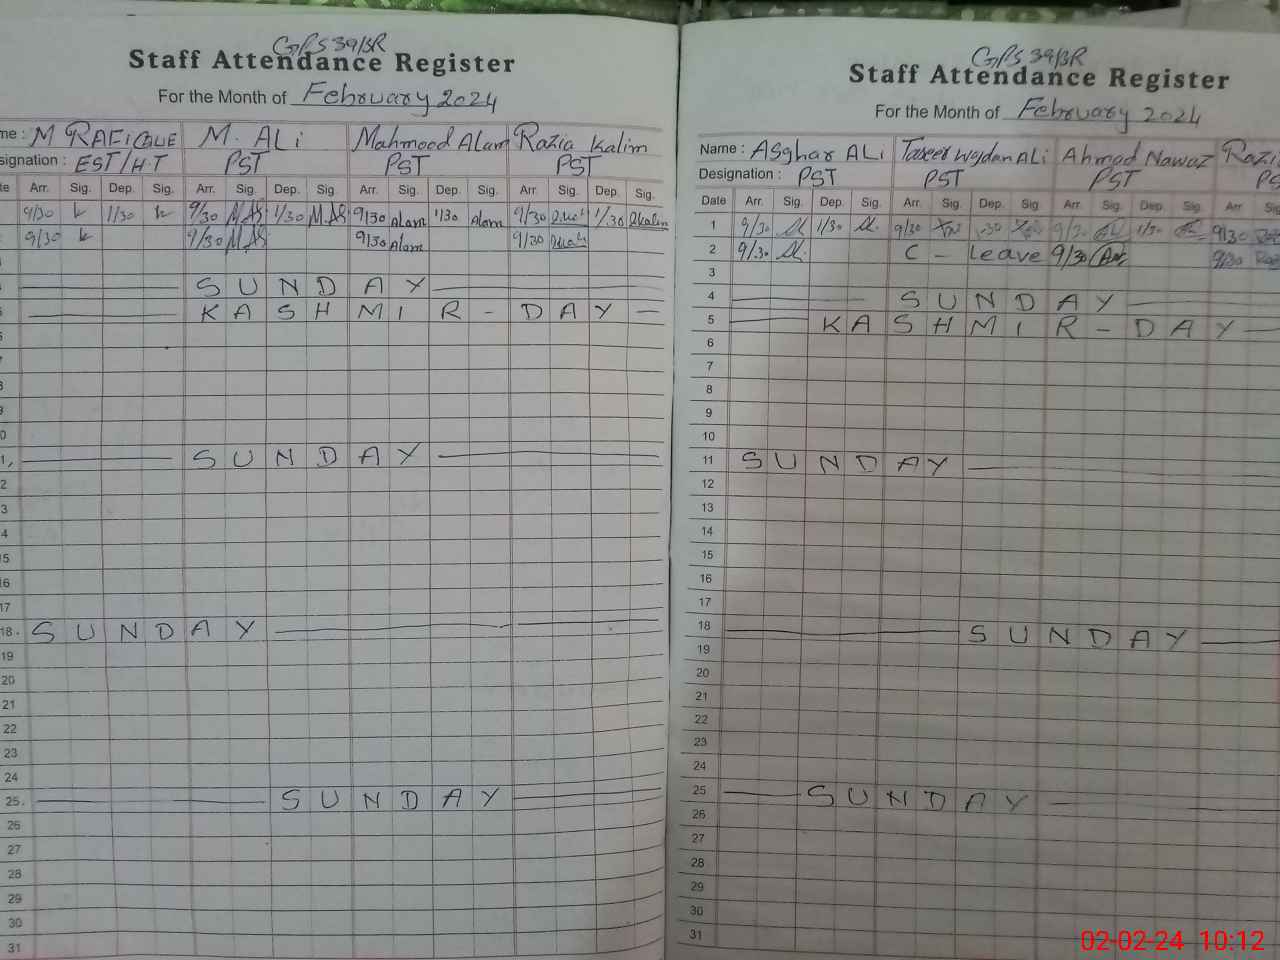 GPS 39/BR
Staff Attendance Register
For the Month of February 2024
me : M RAFIQUE M. ALi Mahmood Alam Razia Kalim
signation : EST/H.T PST PST PST
te Arr. Sig. Dep. Sig. Arr. Sig. Dep. Sig. Arr. Sig. Dep. Sig. Arr. Sig. Dep. Sig.
9/30 1/30 9/30 M.AS 1/30 M.AS 9/30 Alam 1/30 Alam 9/30 1/30 Rkalim
9/30 9/30 M.AS 9/30 Alam 9/30
SUNDAY
KASHMIR-DAY
SUNDAY
18. SUNDAY
19
20
21
22
23
24
25. SUNDAY
26
27
28
29
30
31
GPS 39/BR
Staff Attendance Register
For the Month of February 2024
Name : ASghar ALi Taseer Wajdan ALi Ahmad Nawaz Razi
Designation : PST PST PST PS
Date Arr. Sig. Dep. Sig. Arr. Sig. Dep. Sig. Arr. Sig. Dep. Sig. Arr Sig
1 9/30 1/30 9/30 1/30 9/30 1/30 9/30
2 9/30 C - Leave 9/30 9/30
3
4 SUNDAY
5 KASHMIR-DAY
6
7
8
9
10
11 SUNDAY
12
13
14
15
16
17
18 SUNDAY
19
20
21
22
23
24
25 SUNDAY
26
27
28
29
30
31
02-02-24 10:12